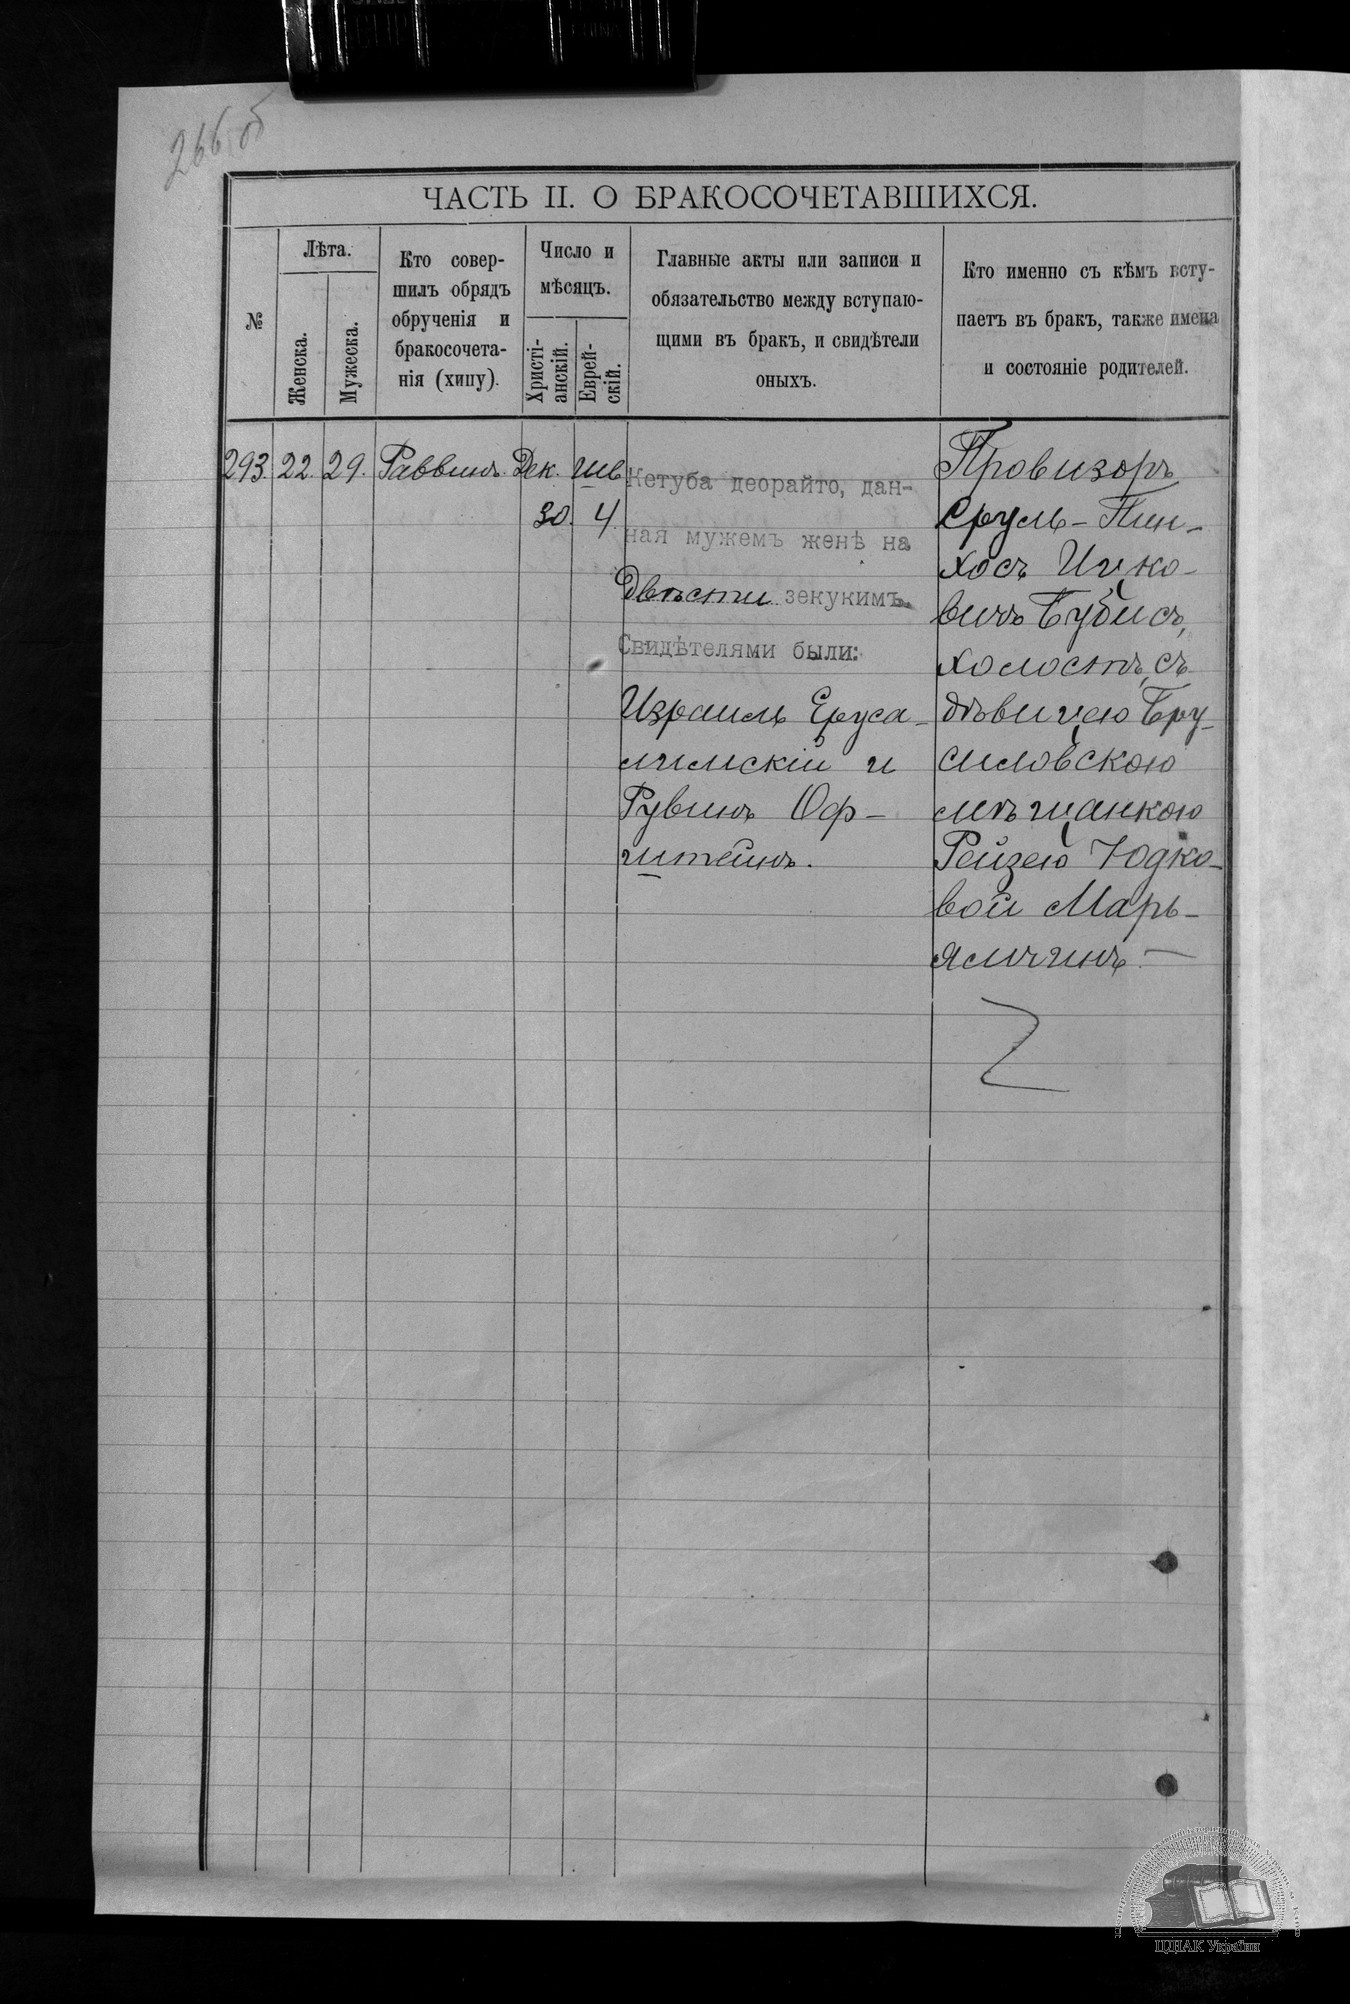 266 об
ЧАСТЬ II. О БРАКОСОЧЕТАВШИХСЯ.
№
Лѣта.
Женска.
Мужеска.
Кто совер-
шилъ обрядъ
обрученія и
бракосочета-
нія (хипу).
Число и
мѣсяцъ.
Христі-
анскій.
Еврей-
скій.
Главные акты или записи и
обязательство между вступаю-
щими въ брак, и свидѣтели
оныхъ.
Кто именно съ кѣмъ всту-
паетъ въ брак, также имена
и состояніе родителей.
293. 22. 29. Раввинъ Дек. Шв
30. 4
Кетуба деорайто, дан-
ная мужемъ женѣ на
Двѣсти зекукимъ.
Свидѣтелями были:
Израиль Еруса-
лимскій и
Рувинъ Оф-
штейнъ.
Провизоръ
Сруль-Пин-
хосъ Ицко-
вичъ Бубисъ,
холостъ, съ
дѣвицею Бру-
силовскою
мѣщанкою
Рейзею Юдко-
вой Марь-
ямчинъ —
ЦДІАК України